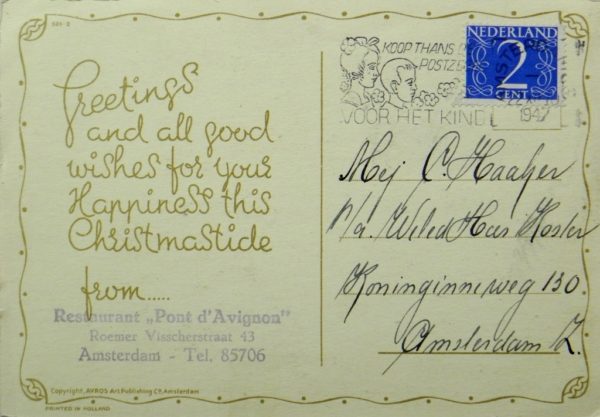 Greetings
and all good
wishes for your
Happiness this
Christmastide
from.....
Restaurant „Pont d'Avignon"
Roemer Visscherstraat 43
Amsterdam - Tel. 85706
Copyright, AVROS Art Publishing Co. Amsterdam
PRINTED IN HOLLAND
NEDERLAND
2
CENT
KOOP THANS
VOOR HET KIND
1947
Mej C. Haaljer
p/a. Weled Heer Koster
Koninginneweg 130
Amsterdam Z.